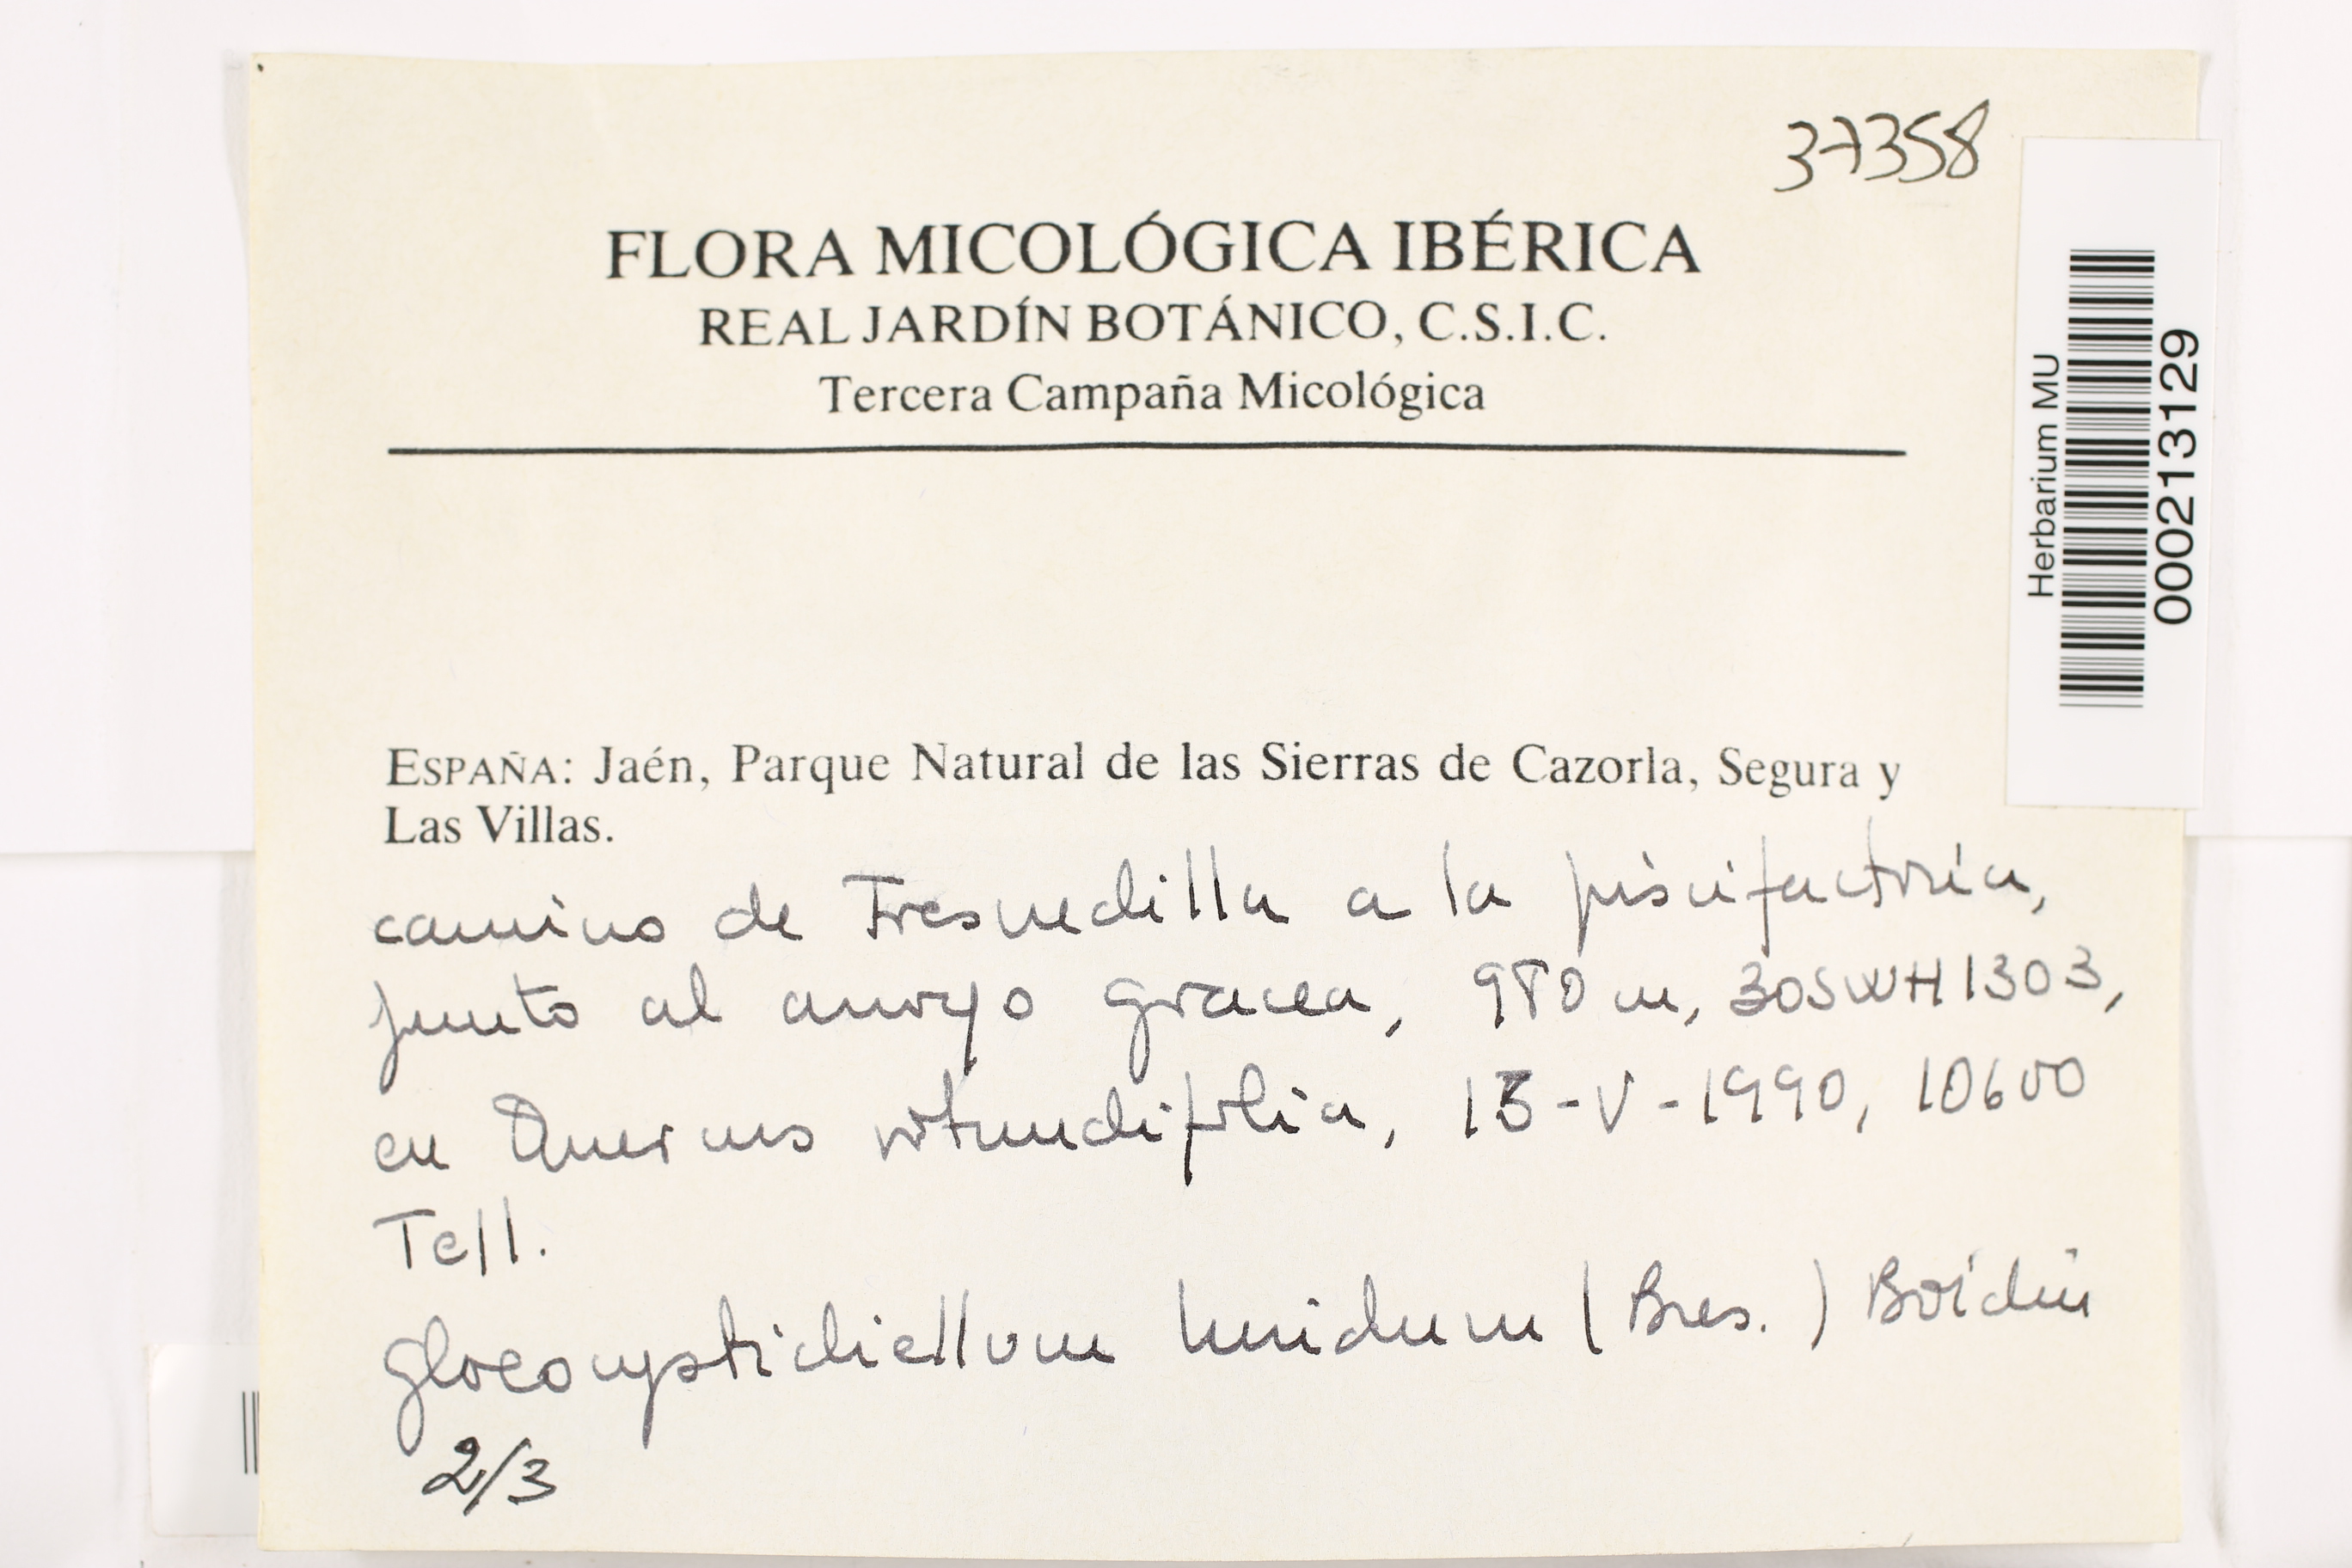 37358
FLORA MICOLÓGICA IBÉRICA
REAL JARDÍN BOTÁNICO, C.S.I.C.
Tercera Campaña Micológica
Herbarium MU
000213129
ESPAÑA: Jaén, Parque Natural de las Sierras de Cazorla, Segura y
Las Villas.
camino de Fresnedilla a la piscifactoría,
junto al arroyo Gracea, 980 m, 30SWH1303,
en Quercus rotundifolia, 13-V-1990, 10600
Tell.
Gloeocystidiellum luridum (Bres.) Boidin
2/3